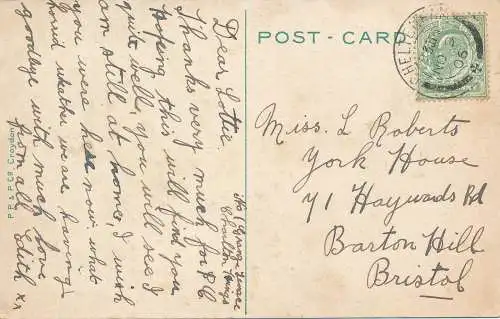 POST - CARD
Dear Lottie.
Thanks very much for P.C
Hoping this will find you
quite well, you will see I
am still at home, I wish
you were here now what
horrid weather we are having
goodbye with much love
from all Edith xx
Charlton Kings
Miss. L Roberts
York House
71 Haywards Rd
Barton Hill
Bristol
P. P. & P. Co. Croydon